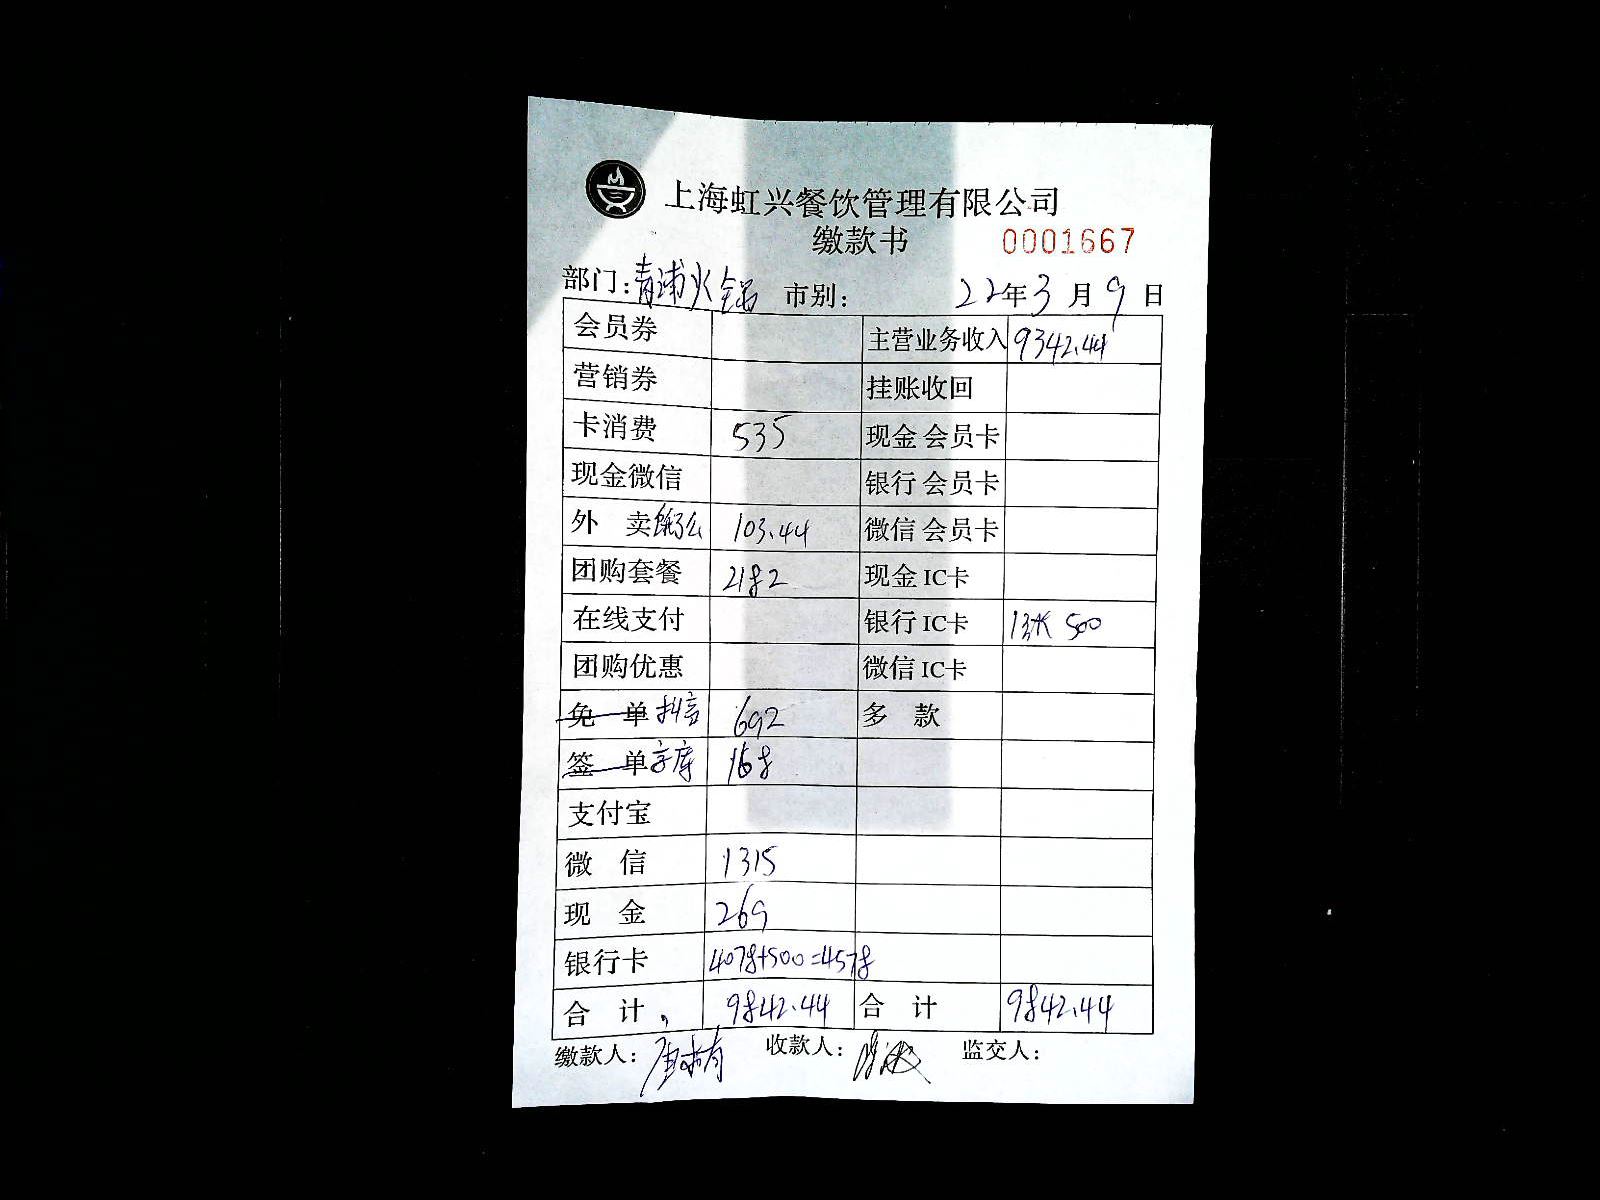 上海虹兴餐饮管理有限公司
缴款书 0001667
部门:青浦火锅 市别: 22年3月9日
会员券 主营业务收入 9342.44
营销券 挂账收回
卡消费 535 现金会员卡
现金微信 银行会员卡
外卖饿了么 103.44 微信会员卡
团购套餐 2182 现金IC卡
在线支付 银行IC卡 500
团购优惠 微信IC卡
免单 抖音 692 多款
签单 168
支付宝
微信 1315
现金 269
银行卡 4078+500=4578
合计 9842.44 合计 9842.44
缴款人: 收款人: 监交人: